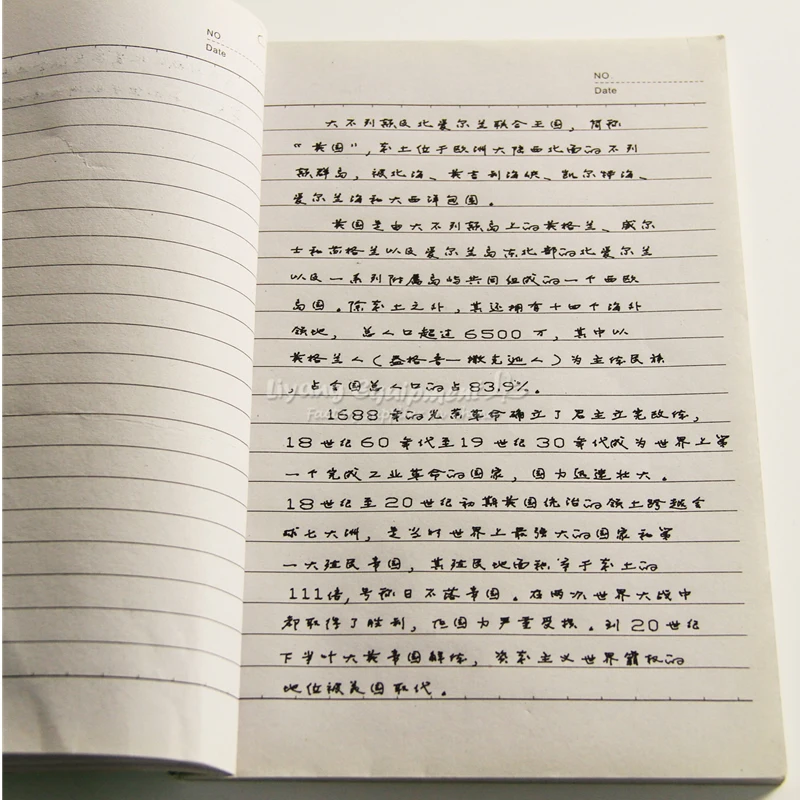 NO
Date
NO.
Date
大不列颠及北爱尔兰联合王国，简称
“英国”，本土位于欧洲大陆西北面的不列
颠群岛，被北海、英吉利海峡、凯尔特海、
爱尔兰海和大西洋包围。
英国是由大不列颠岛上的英格兰、威尔
士和苏格兰以及爱尔兰岛东北部的北爱尔兰
以及一系列附属岛屿共同组成的一个西欧
岛国。除本土之外，其还拥有十四个海外
领地，总人口超过6500万，其中以
英格兰人（盎格鲁一撒克逊人）为主体民族
，占全国总人口的占83.9%。
Liyang Equipment
1688年的光荣革命确立了君主立宪政体，
18世纪60年代至19世纪30年代成为世界上第
一个完成工业革命的国家，国力迅速壮大。
18世纪至20世纪初期英国统治的领土跨越全
球七大洲，是当时世界上最强大的国家和第
一大殖民帝国，其殖民地面积等于本土的
111倍，号称日不落帝国。在两次世界大战中
都取得了胜利，但国力严重受损。到20世纪
下半叶大英帝国解体，资本主义世界霸权的
地位被美国取代。